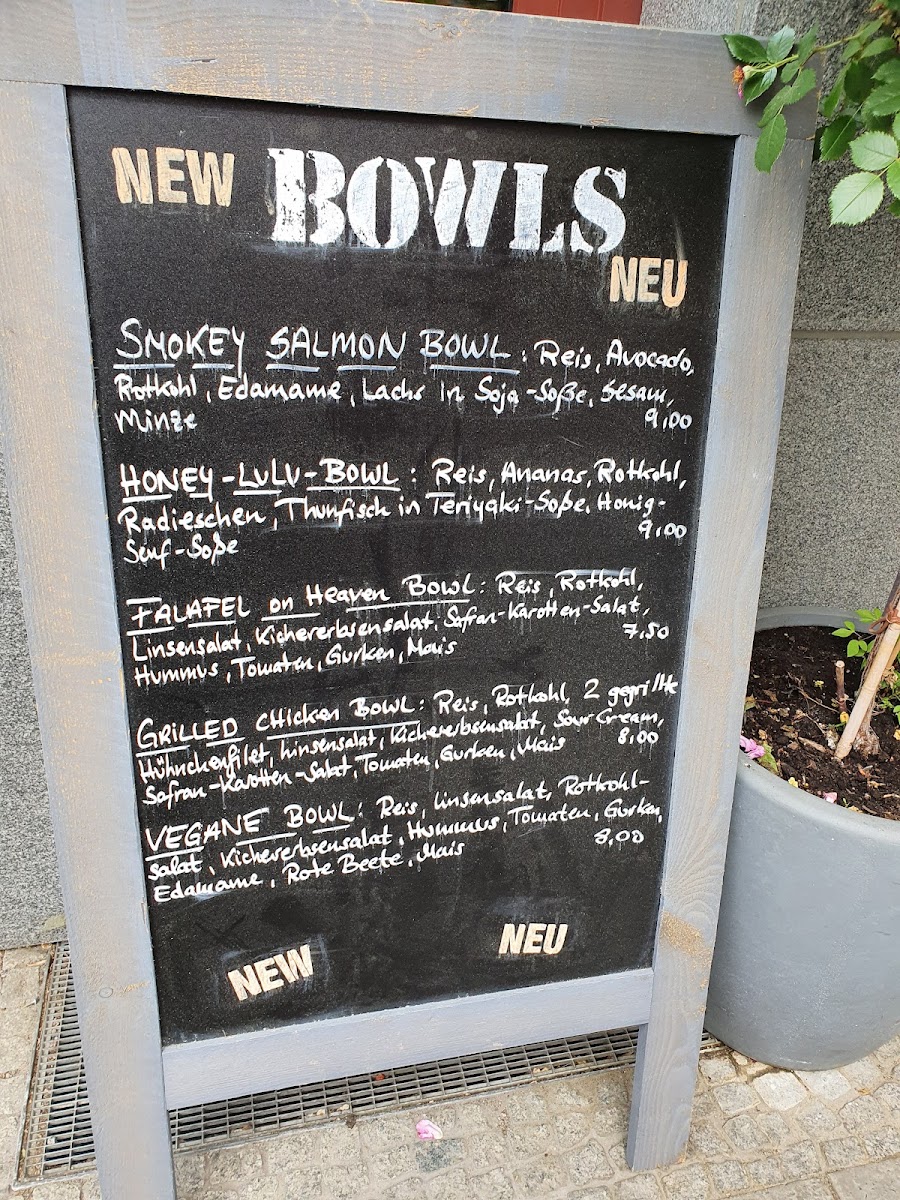 NEW BOWLS
NEU
SMOKEY SALMON BOWL : Reis, Avocado,
Rotkohl, Edamame, Lachs in Soja-Soße, Sesam,
Minze 9,00
HONEY-LULU-BOWL : Reis, Ananas, Rotkohl,
Radieschen, Thunfisch in Teriyaki-Soße, Honig-
Senf-Soße 9,00
FALAFEL on Heaven BOWL: Reis, Rotkohl,
Linsensalat, Kichererbsensalat, Safran-Karotten-Salat,
Hummus, Tomaten, Gurken, Mais 7,50
GRILLED CHICKEN BOWL: Reis, Rotkohl, 2 gegrillte
Hühnchenfilet, Linsensalat, Kichererbsensalat, Sour Cream,
Safran-Karotten-Salat, Tomaten, Gurken, Mais 8,00
VEGANE BOWL: Reis, Linsensalat, Rotkohl-
salat, Kichererbsensalat, Hummus, Tomaten, Gurken,
Edamame, Rote Beete, Mais 8,00
NEW NEU